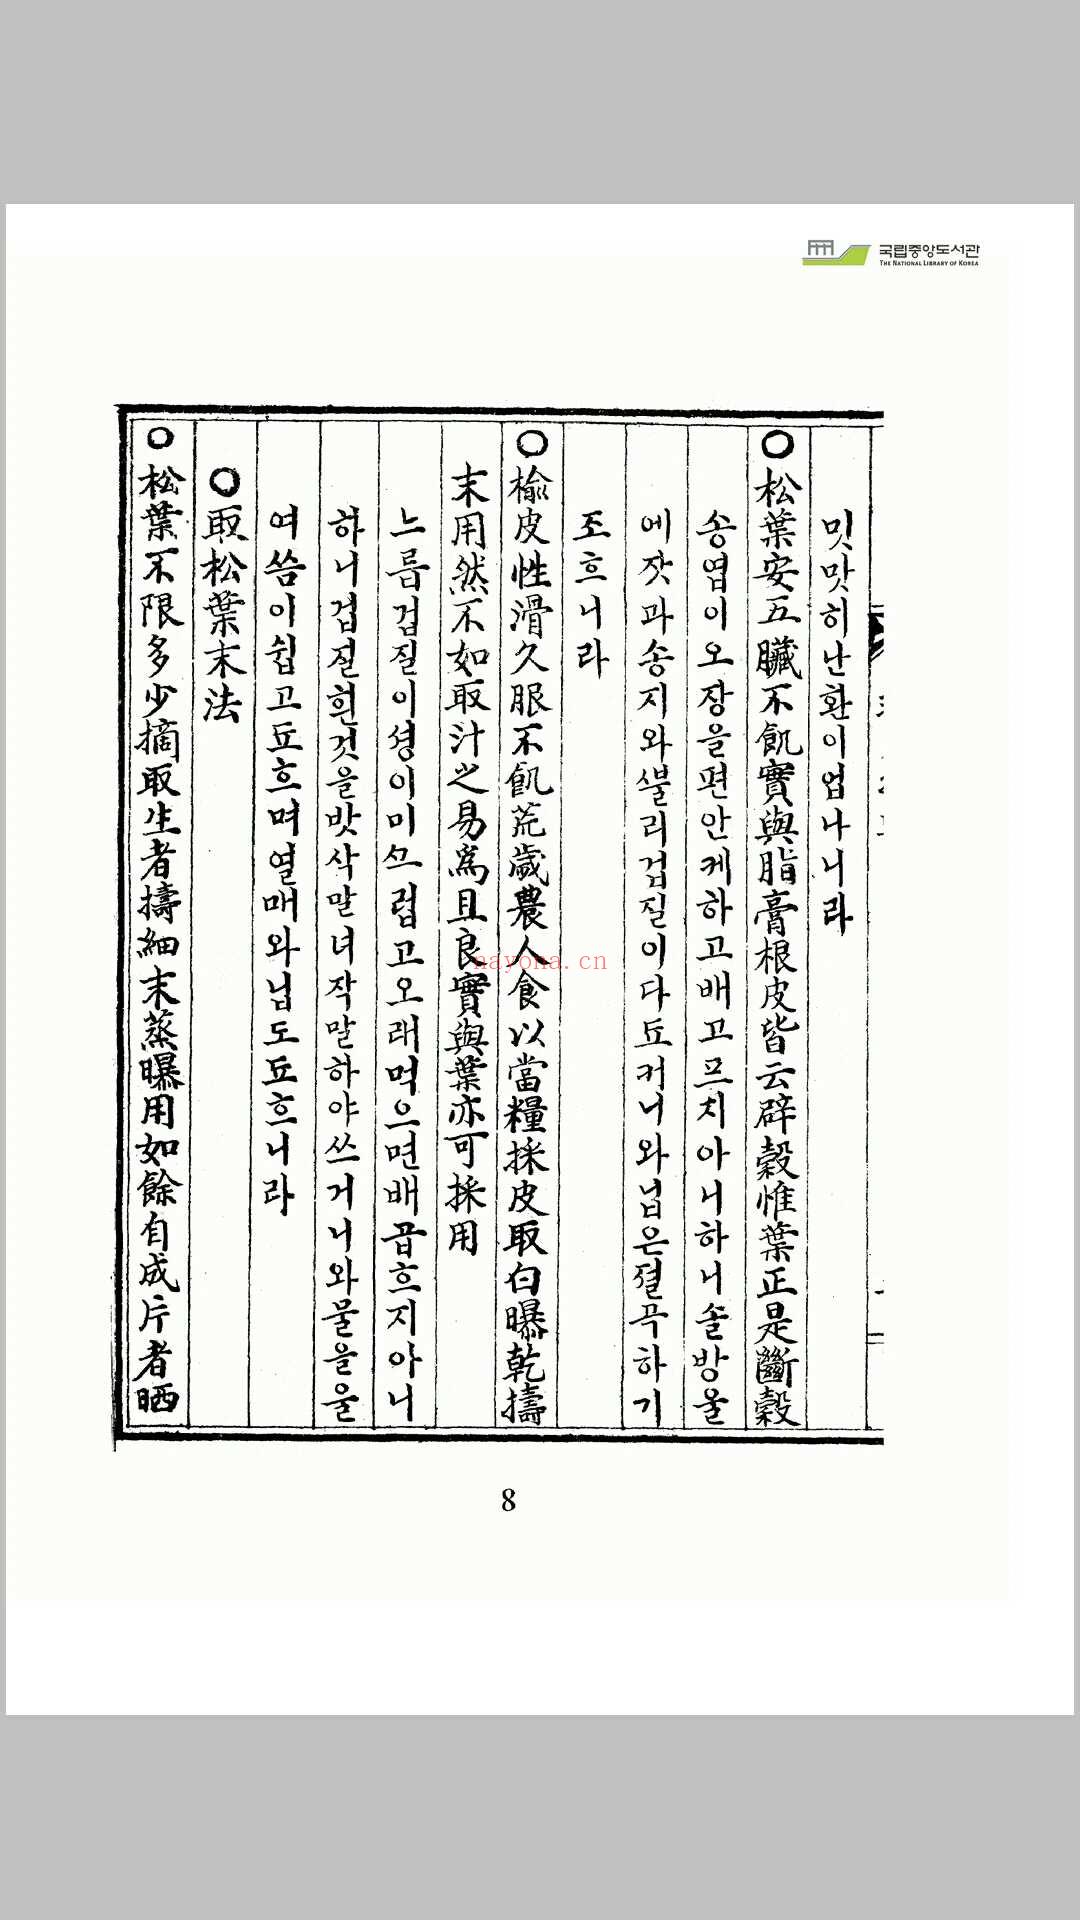 국립중앙도서관
THE NATIONAL LIBRARY OF KOREA
밋맛히난환이업나니라
○松葉安五臟不飢實與脂膏根皮皆云辟穀惟葉正是斷穀
송엽이오장을편안케하고배고프지아니하니솔방울
에잣과송지와뿔리겁질이다됴커니와닙은졀곡하기
죠흐니라
○楡皮性滑久服不飢荒歲農人食以當糧採皮取白曝乾擣
末用然不如取汁之易爲且良實與葉亦可採用
느릅겁질이셩이미끄럽고오래먹으면배곱흐지아니
하니겁질흰것을밧삭말녀작말하야쓰거니와물을울
여씀이쉽고됴흐며열매와닙도됴흐니라
○取松葉末法
○松葉不限多少摘取生者擣細末蒸曝用如餘自成片者晒
nayona.cn
8